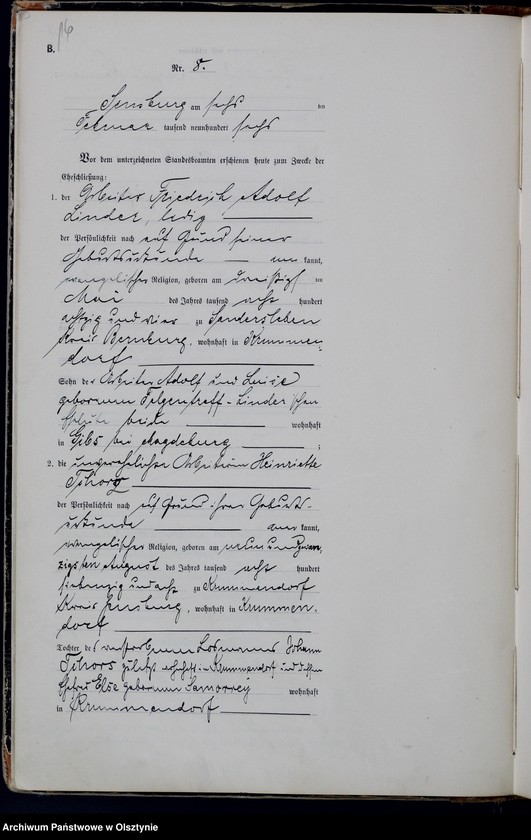 B.
16
Nr. 8.
Sensburg am sechs ten
Februar tausend neunhundert sechs
Vor dem unterzeichneten Standesbeamten erschienen heute zum Zwecke der
Eheschließung:
1. der Arbeiter Friedrich Adolf
Linder, ledig
der Persönlichkeit nach auf Grund seiner
Geburtsurkunde kannt,
evangelischer Religion, geboren am dreißigsten
Mai des Jahres tausend acht hundert
achtzig und vier zu Sandersleben
Kreis Bernburg, wohnhaft in Krummen-
dorf
Sohn der Arbeiter Adolf und Luise
geborenen Felgentreff-Linder'schen
Eheleute beide wohnhaft
in bei Magdeburg ;
2. die unverehelichte Arbeiterin Henriette
der Persönlichkeit nach auf Grund ihrer Geburts-
urkunde aner kannt,
evangelischer Religion, geboren am neunundzwan-
zigsten August des Jahres tausend acht hundert
siebenzig und acht zu Krummendorf
Kreis Sensburg, wohnhaft in Krummen-
dorf
Tochter des verstorbenen Losmanns Johann
zuletzt wohnhaft in Krummendorf und dessen
Ehefrau Else geborenen wohnhaft
in Krummendorf
Archiwum Państwowe w Olsztynie